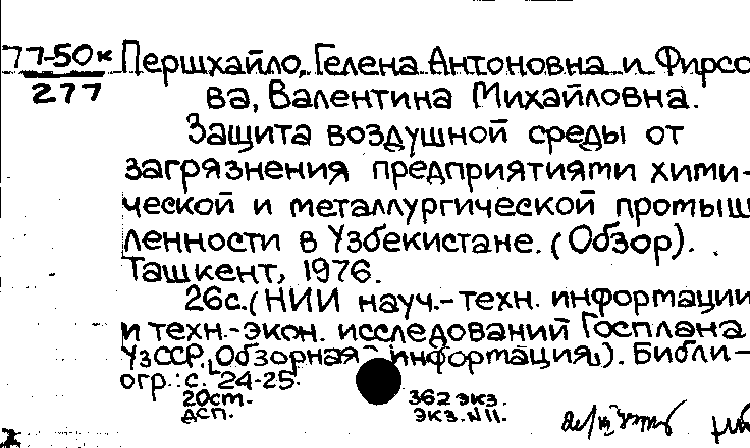 77-50к
277
Першхайло, Гелена Антоновна и Фирсо
ва, Валентина Михайловна.
Защита воздушной среды от
загрязнения предприятиями хими-
ческой и металлургической промыш
ленности в Узбекистане. (Обзор).
Ташкент, 1976.
26с. (НИИ науч.-техн. информации
и техн.-экон. исследований Госплана
УзССР. „Обзорная информация"). Библи-
огр.: с. 24-25.
20ст. 362 экз.
дсп. экз. N 11.